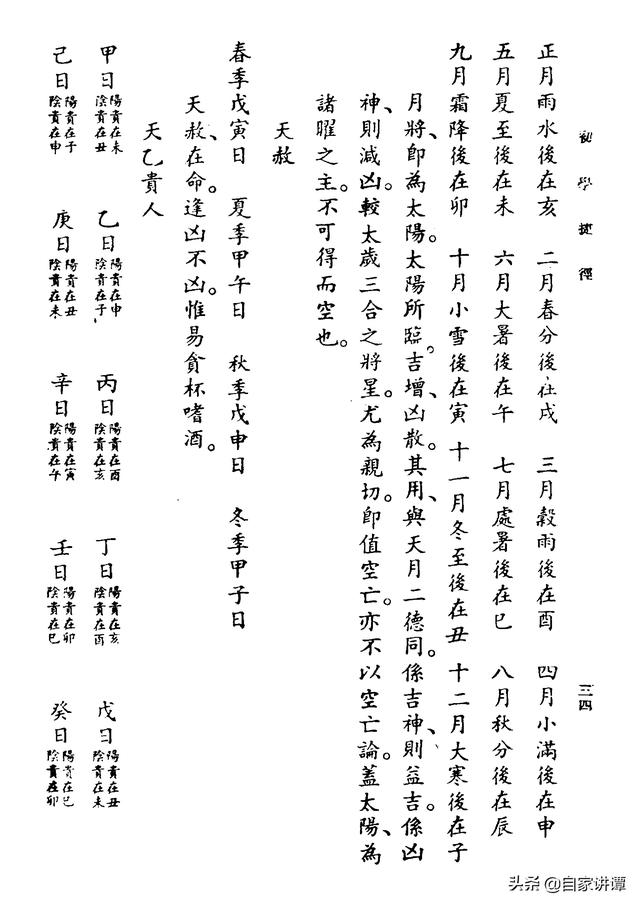 初學捷徑
三四
正月雨水後在亥 二月春分後在戌 三月穀雨後在酉 四月小滿後在申
五月夏至後在未 六月大暑後在午 七月處暑後在巳 八月秋分後在辰
九月霜降後在卯 十月小雪後在寅 十一月冬至後在丑 十二月大寒後在子
月將、即為太陽。太陽所臨。吉增、凶散。其用、與天月二德同。係吉神、則益吉。係凶
神、則減凶。較太歲三合之將星。尤為親切。即值空亡。亦不以空亡論。蓋太陽、為
諸曜之主。不可得而空也。
天赦
春季戊寅日 夏季甲午日 秋季戊申日 冬季甲子日
天赦在命。逢凶不凶。惟易貪杯嗜酒。
天乙貴人
甲日 陽貴在未 陰貴在丑 乙日 陽貴在申 陰貴在子 丙日 陽貴在酉 陰貴在亥 丁日 陽貴在亥 陰貴在酉 戊日 陽貴在丑 陰貴在未
己日 陽貴在子 陰貴在申 庚日 陽貴在丑 陰貴在未 辛日 陽貴在寅 陰貴在午 壬日 陽貴在卯 陰貴在巳 癸日 陽貴在巳 陰貴在卯
头条 @自家讲谭